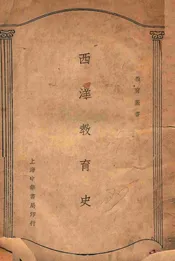 西洋教育史
上海中華書局印行